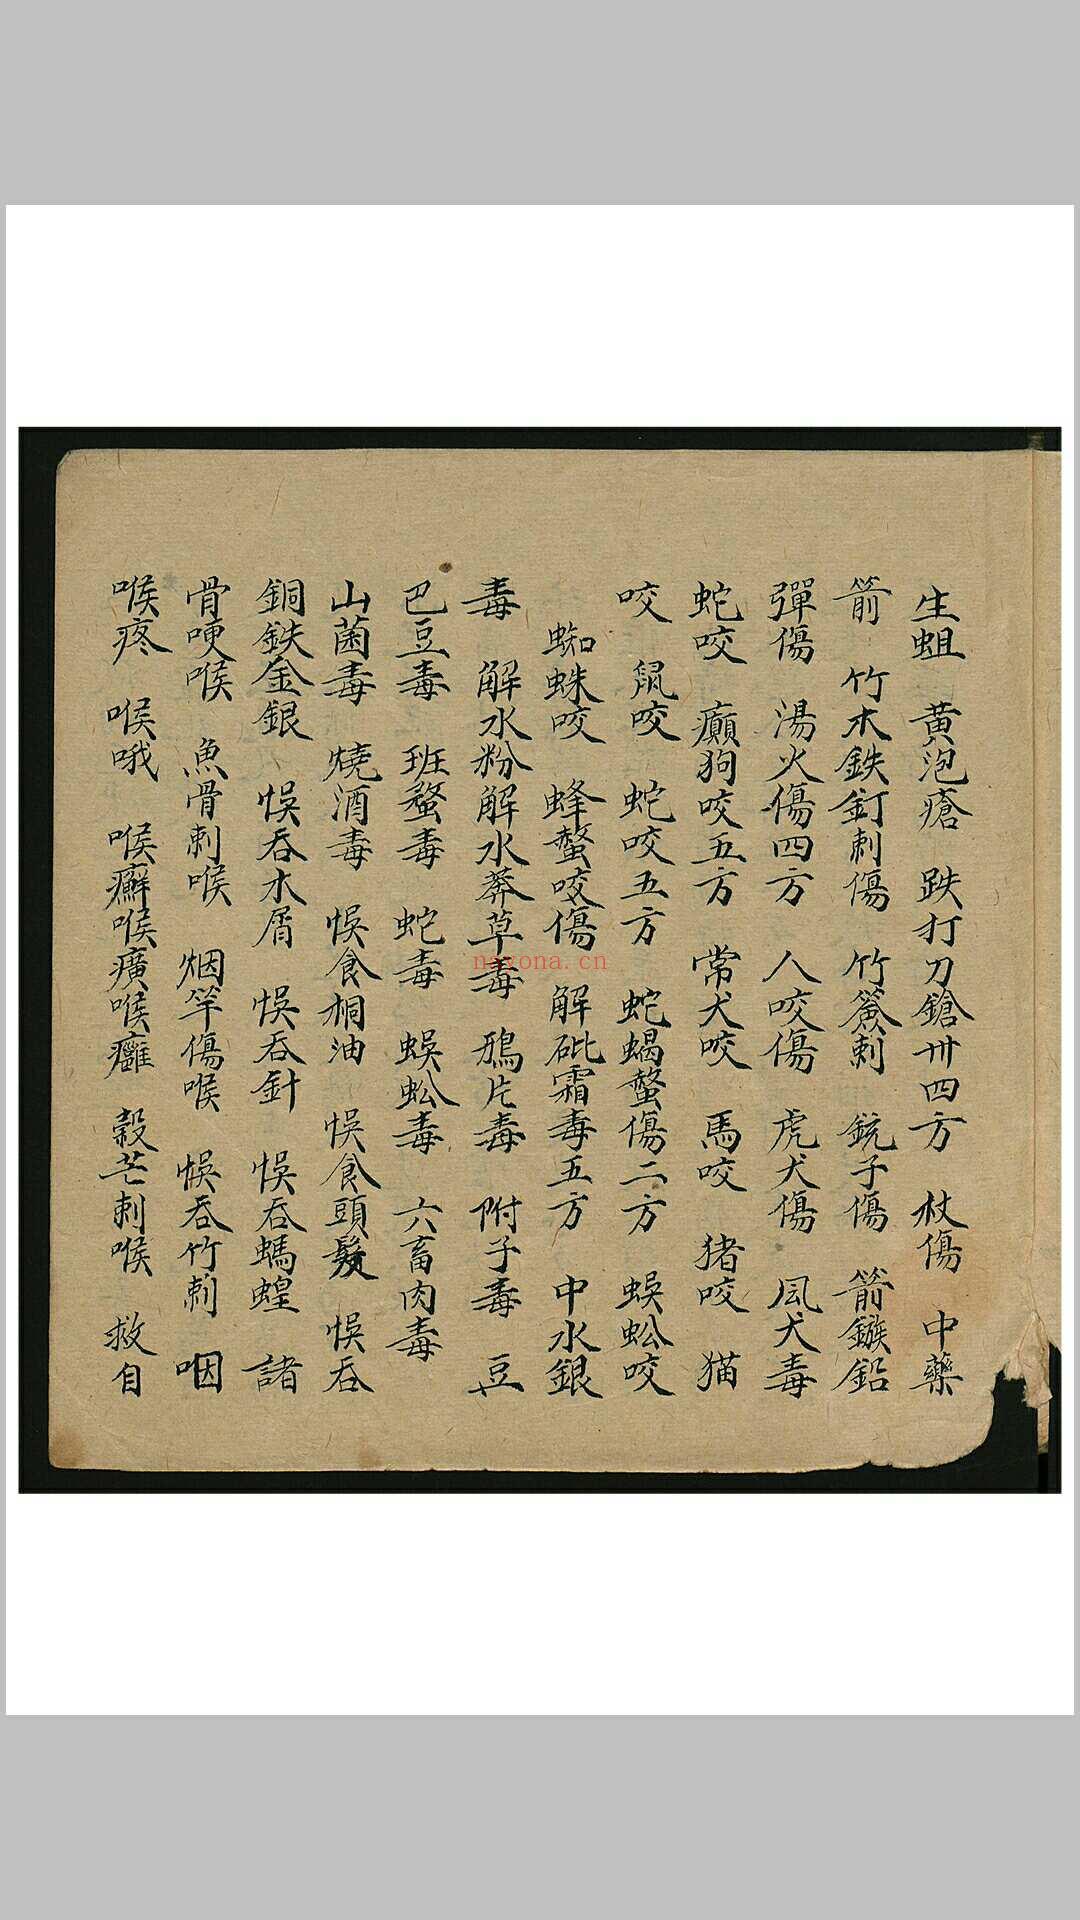 生蛆　黃泡瘡　跌打刀鎗卅四方　杖傷　中藥
箭　竹木鉄釘刺傷　竹簽刺　銃子傷　箭鏃鉛
彈傷　湯火傷四方　人咬傷　虎犬傷　風犬毒
蛇咬　癲狗咬五方　常犬咬　馬咬　猪咬　猫
咬　鼠咬　蛇咬五方　蛇蝎螫傷二方　蜈蚣咬
蜘蛛咬　蜂螫咬傷　解砒霜毒五方　中水銀
毒　解水粉解水莽草毒　鴉片毒　附子毒　豆
巴豆毒　班蝥毒　蛇毒　蜈蚣毒　六畜肉毒
山菌毒　燒酒毒　悞食桐油　悞食頭髮　悞吞
銅鉄金銀　悞吞木屑　悞吞針　悞吞螞蝗　諸
骨哽喉　魚骨刺喉　烟竿傷喉　悞吞竹刺　咽
喉疼　喉哦　喉癬喉癀喉癰　穀芒刺喉　救自
nayona.cn